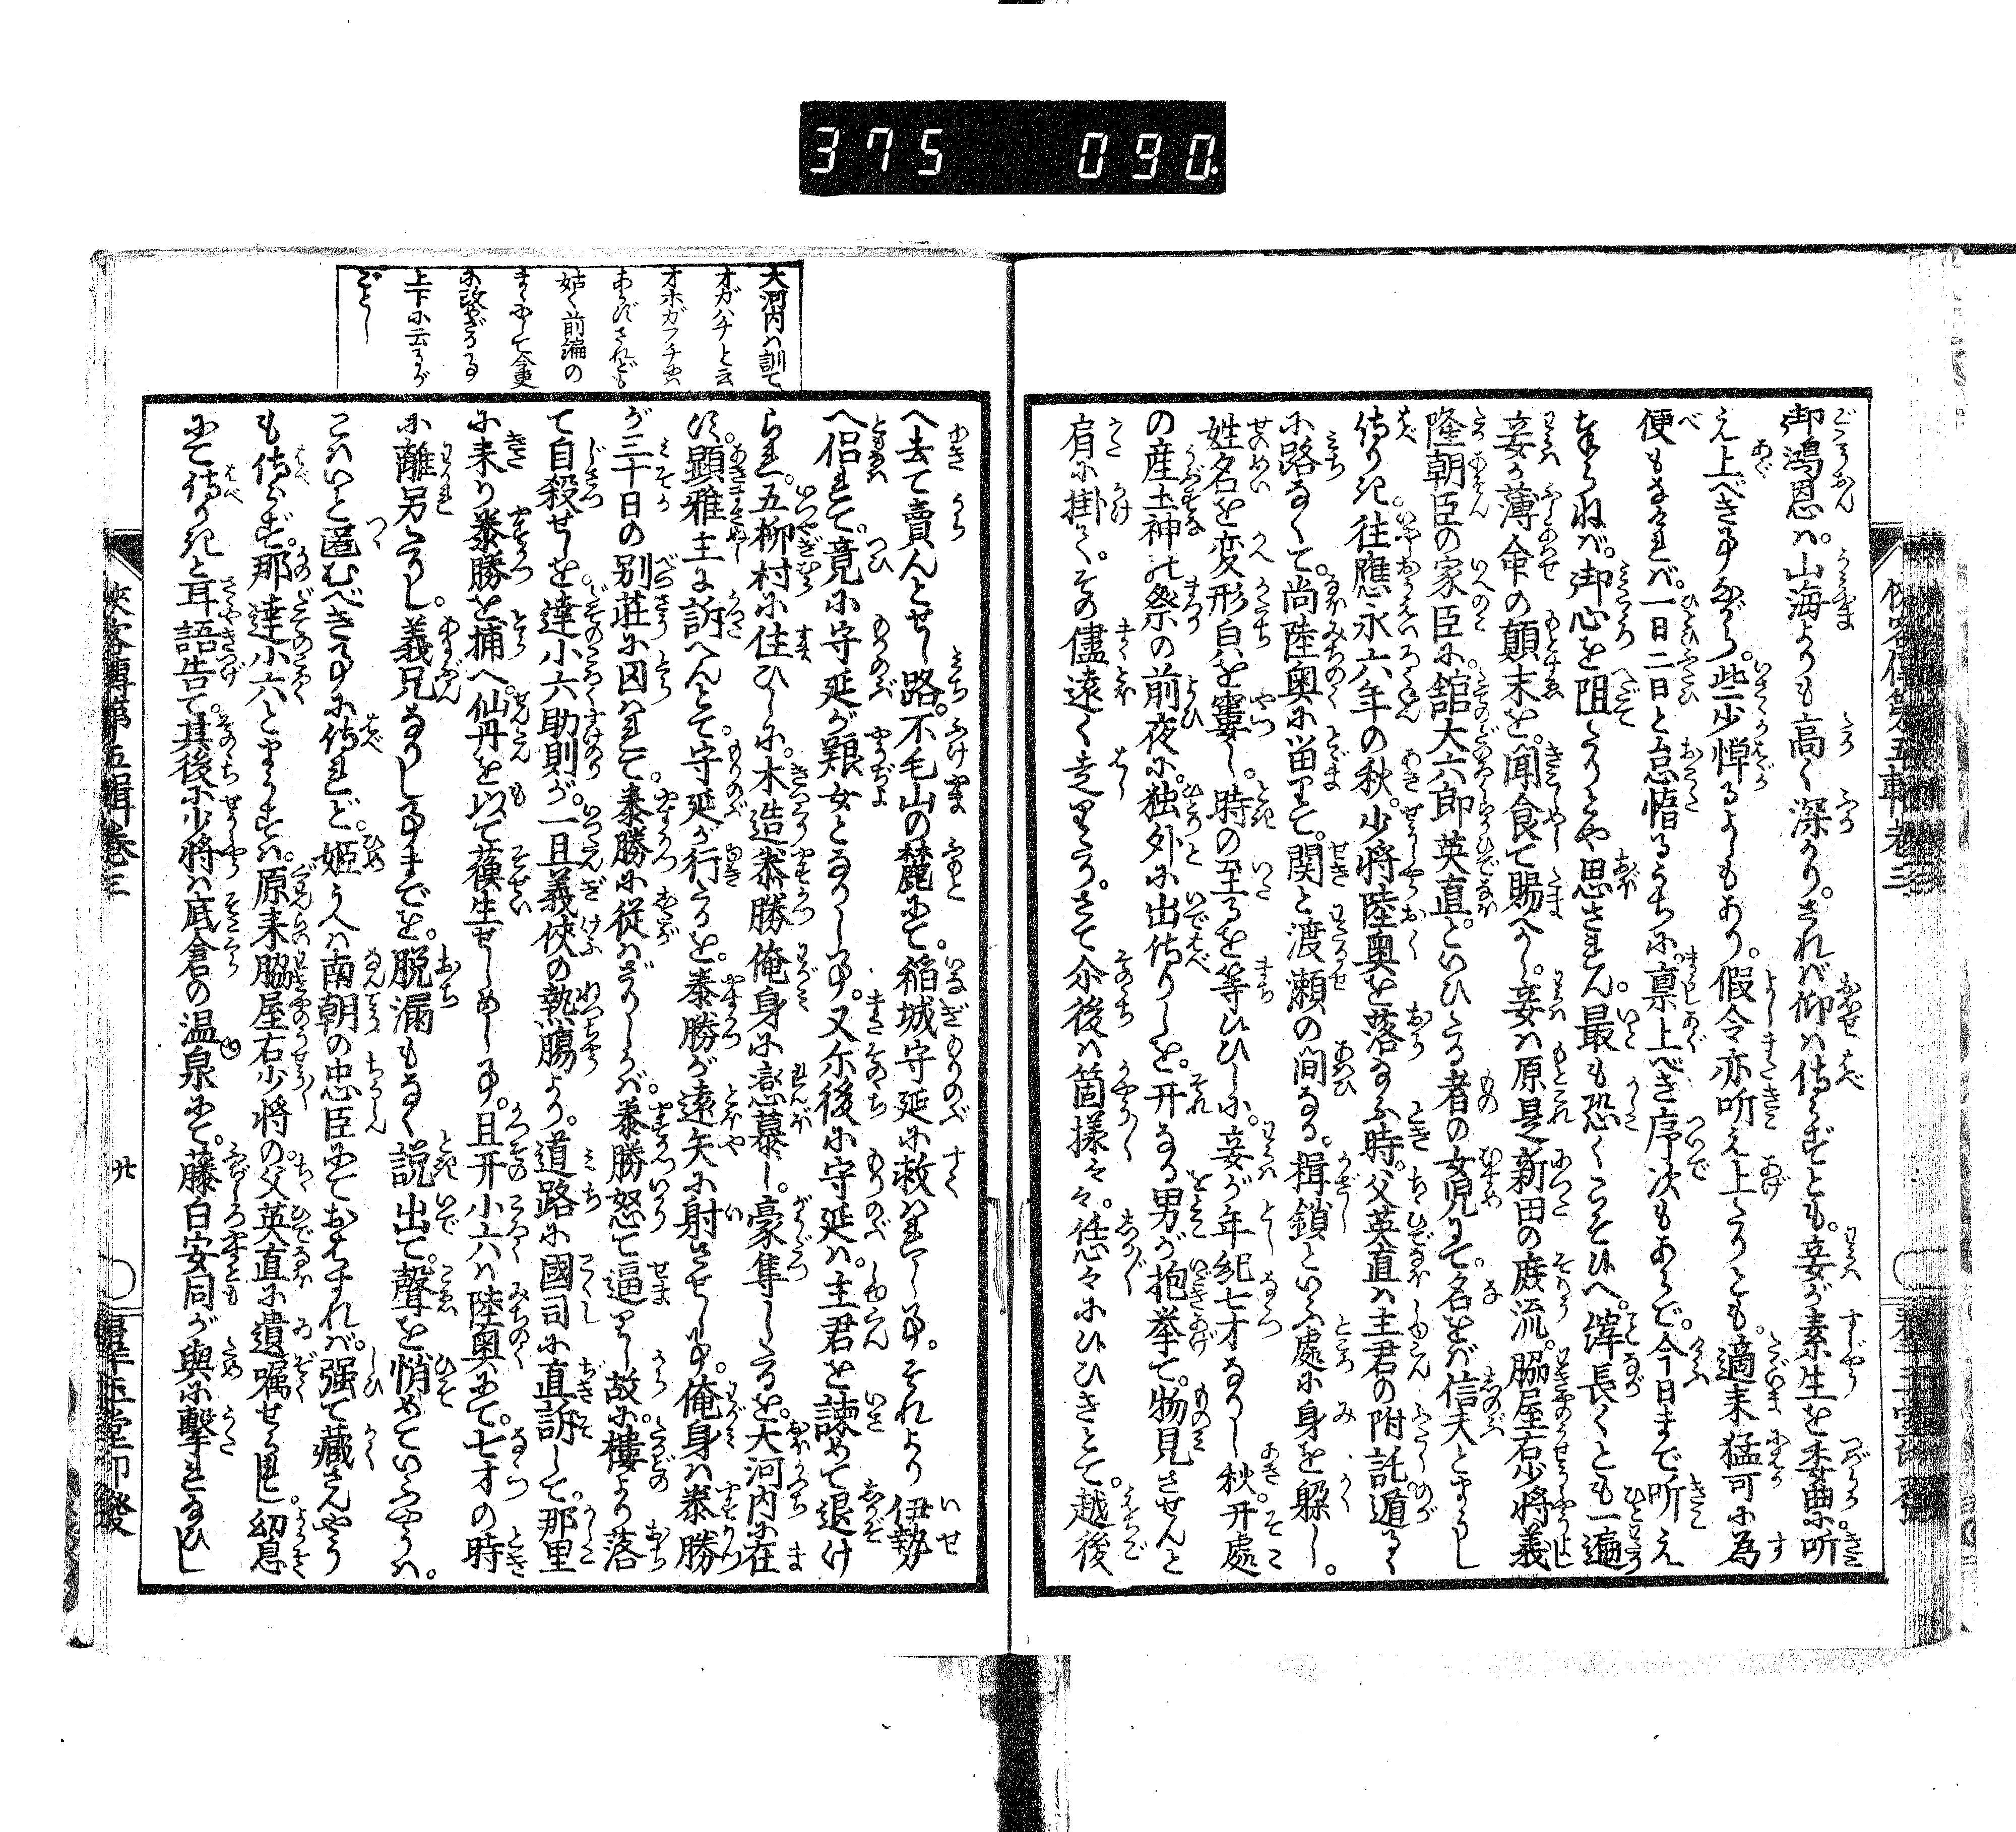 375 090
御鴻恩ハ山海よりも高く深かり。されバ仰ハ侍らずとも。妾が素生を委曲に听
え上べき事ながら。些少憚るよしもあり。假令亦听え上たりとも。適来猛可に為
便もなけれバ。一日二日と怠惰るうちに。稟上べき序次もあらで。今日まで听え
まゐらねバ。御心を阻たりとや思されん。最も恐くこそ侍れ。譚長くとも一遍
妾が薄命の顛末を。聞食て賜へかし。妾ハ原是新田の庶流。脇屋右少将義
隆朝臣の家臣に。舘大六郎英直。といひたる者の女児にて。名をバ信夫とよばし
侍りき。往應永六年の秋。少将陸奥を落給ふ時。父英直ハ主君の附託。遁るゝ
に路なくて。尚陸奥に畄りて。関と渡瀬の間なる。楫鎖といふ處に身を躱し。
姓名を変形皃を窶し。時の至るを等ひひしに。妾が年紀七才なりし秋。开處
の産土神の祭の前夜に。独外に出侍りしを。开なる男が抱挙て。物見させんと
肩に掛て。その儘遠く走りたり。さて尒後ハ箇様々々。恁々にひひきとて。越後
へ去て賣んとせし路。不毛山の麓にて。稲城守延に救ハれし事。それより伊勢
へ侶れて。竟に守延が艱女となりし事。又尒後に守延ハ。主君を諫めて退け
られ。五柳村に住ひしに。木造泰勝俺身に戀慕し。豪隼したるを。大河内に在
す。顕雅主に訴へんとて。守延が行たるを。泰勝が遠矢に射させし事。俺身ハ泰勝
が三十日の別荘に囚ハれて。泰勝に従ハざりしかバ。泰勝怒て逼りし故に。樓より落
て自殺せしを。達小六助則が。一旦義侠の熱膓より。道路に國司に直訴して。那里
に来り泰勝を捕へ。仙丹を以て蘓生せしめし事。且开小六ハ陸奥にて。七才の時
に離別たりし。義兄なりし事までを。脱漏もなく説出て。聲を悄めていふやうハ。
こハいと匿むべき事に侍れど。姫うへハ南朝の忠臣にておはすれバ。强て藏さんやう
も侍らず。那達小六とまうすハ。原来脇屋右少将の。父英直に遺嘱せられし。幼息
にて侍りきと耳語告て。其後に少将ハ底倉の温泉にて。藤白安同が與に撃れ給ひし
大河内ハ訓て
オガハチと云
オホガフチハ
あらずされども
姑く前編の
まゝにして今更
に改めざる事
上下に云るが
ごとし
侠客傳第五輯巻三
廿